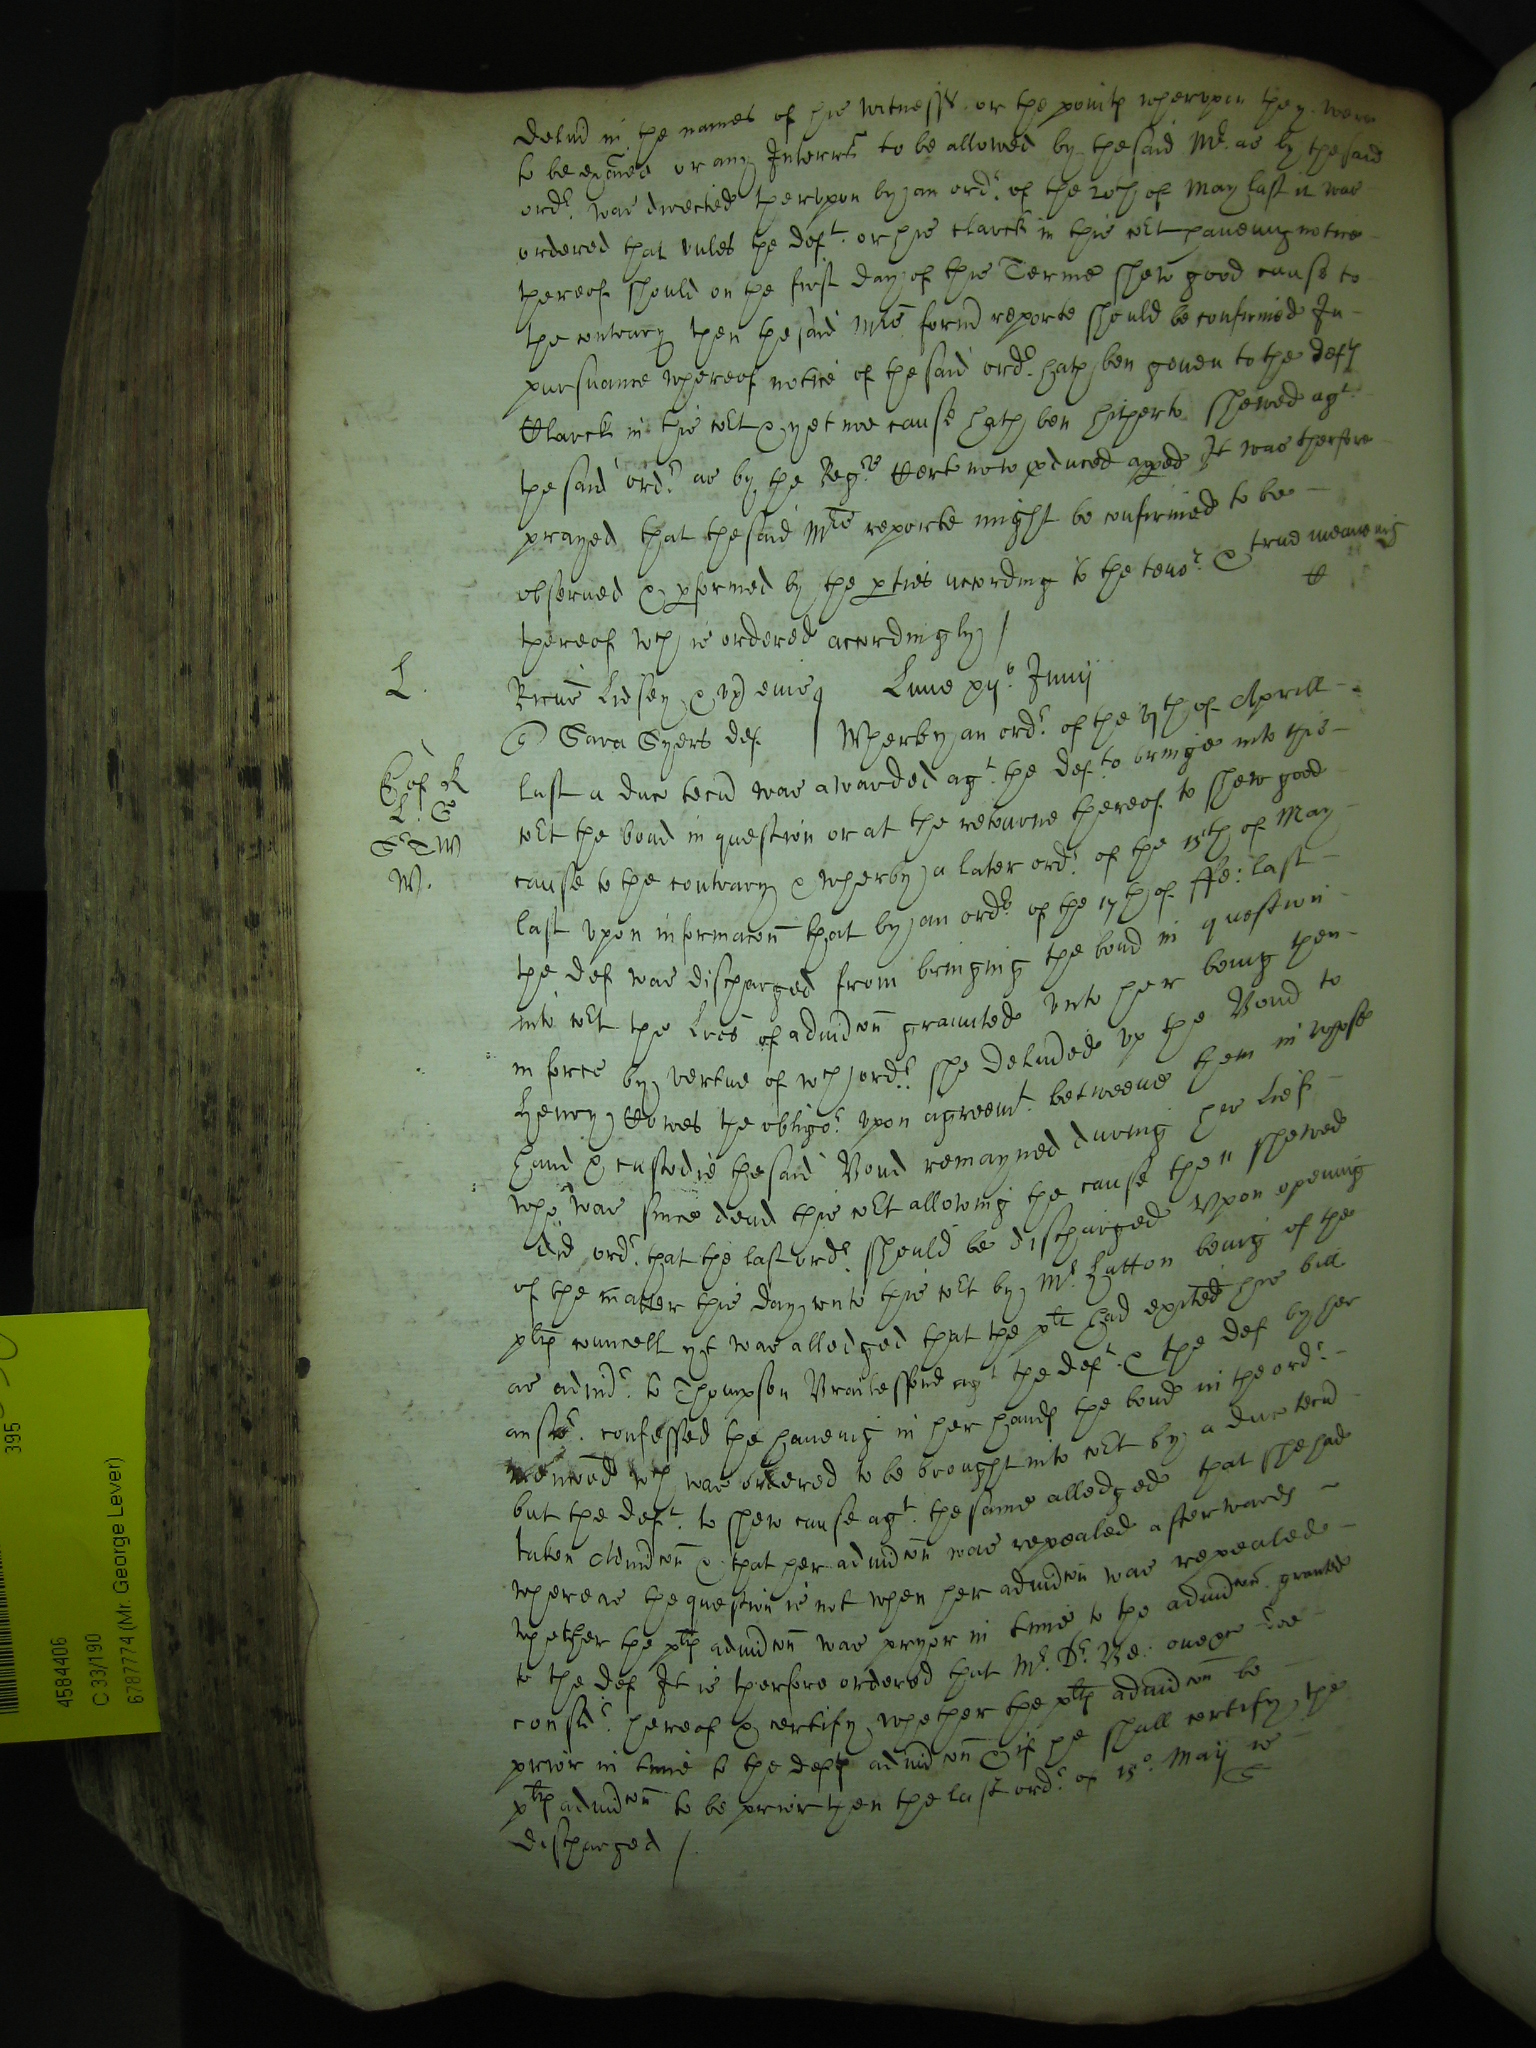 delivd in the names of his witnesses or the points whervpon they were
to be exaied or any Interrs to be allowed by the said Mr. as by the said
ordr. was directed thervpon by an ordr. of the 20th of May last it was
ordered that vnles the deft. or his clarck in this cort haueing notice
thereof should on the first day of this Terme shew good cause to
the contrary then the said Mrs formd reporte should be confirmed In
pursuance whereof notice of the said ordr. hath ben geuen to the defts
Clarck in this cort & yet noe cause hath ben hitherto shewed agt.
the said ordr. as by the Regrs Cert now pduced appred It was therfore
prayed that the said Mrs reporte might be confirmed to be
obserued & pformed by the pties according to the tenor. & true meaneing
thereof wch is ordered accordingly /
L.
Ricus Lidsey & vx eius q Lune xijo. Junij
Sara Syers def. Wherby an ordr. of the 17th of Aprill
last a duc tecu was awarded agt. the deft. to bringe into this
cort the bond in question or at the retourne thereof to shew good
cause to the contrary & wherby a later ordr. of the 15th of May
last vpon informacon that by an ordr. of the 17th of ffe: last
L. C
W.
the def was discharged from bringing the bond in question
into cort the Lres of admdcon graunted vnto her being then
in force by vertue of wch ordr. she deliuded vp the Bond to
Henry Cowes the obligor. vpon agreemt. betweene them in whose
hand & custodie the said Bond remayned during her lief
who was since dead this cort allowing the cause then shewed
did ordr. that the last ordr. should be discharged Vpon opening
of the matter this day vnto this cort by Mr. Hutton being of the
pltfs councell yt was alledged that the plt had exited his bill
as admdr. to Thompson agt the deft. & the def by her
answr. confessed the haueing in her hands the bond in the ordr.
wch was ordered to be brought into cort by a duc tecu
but the deft. to shew cause agt. the same alledged that she had
taken Admdcon & that her admdcon was repealed afterwards
whereas the question is not when her admdcon was repealed
whether the pltfs admdcon was pryor in time to the admdcon. graunted
to the def It is therfore ordered that Mr. Dr. Be:
consid. hereof & certify whether the pltfs admdcon be
prior in time to the defts admdcon & if he shall certify the
pltfs admdcon to be prior then the last ordr. of 15o. Maij is
discharged /
395
4584406
C 33/190
6787774 (Mr. George Lever)